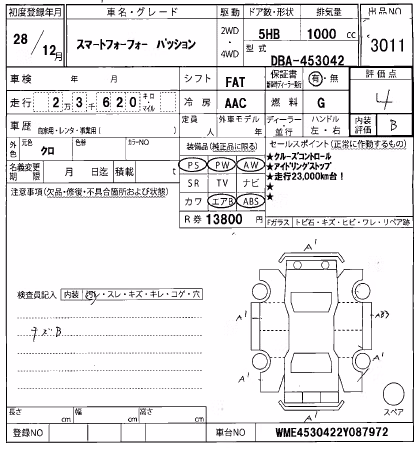 初度登録年月 車名・グレード 駆動 ドア数・形状 排気量 出品NO
28/12月 スマートフォーフォー パッション 2WD・4WD 5HB 1000cc 3011
型式 DBA-453042
車検 年 月 シフト FAT 保証書 有・無 評価点
走行 2万3千620キロ・マイル 冷房 AAC 燃料 G 4
車歴 自家用・レンタ・事業用( ) 定員 人 外車モデル 年 ディーラー・並行 ハンドル 左・右 内装評価 B
外色 元色 クロ 色替 カラーNO 装備品(純正品に限る) セールスポイント(正常に作動するもの)
名義変更期限 月 日迄 積載 t PS PW AW ★クルーズコントロール
注意事項(欠品・修復・不具合箇所および状態) SR TV ナビ ★アイドリングストップ
カワ エアB ABS ★走行23,000km台!
★
★
R券 13800円 Fガラス トビ石・キズ・ヒビ・ワレ・リペア跡
A1
検査員記入 内装 ・スレ・キズ・キレ・コゲ・穴
A1
A1
スペア
A1
長さ cm 幅 cm 高さ cm
登録NO 車台NO WME4530422Y087972